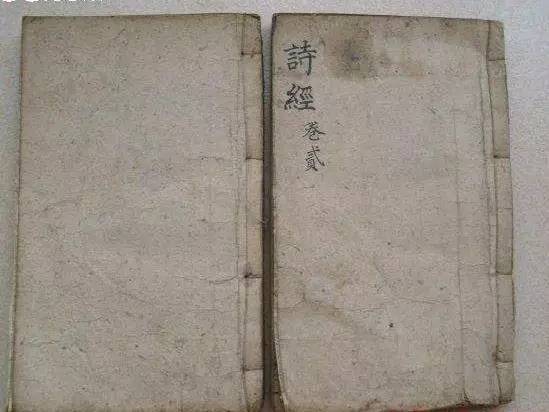 詩經
卷貳